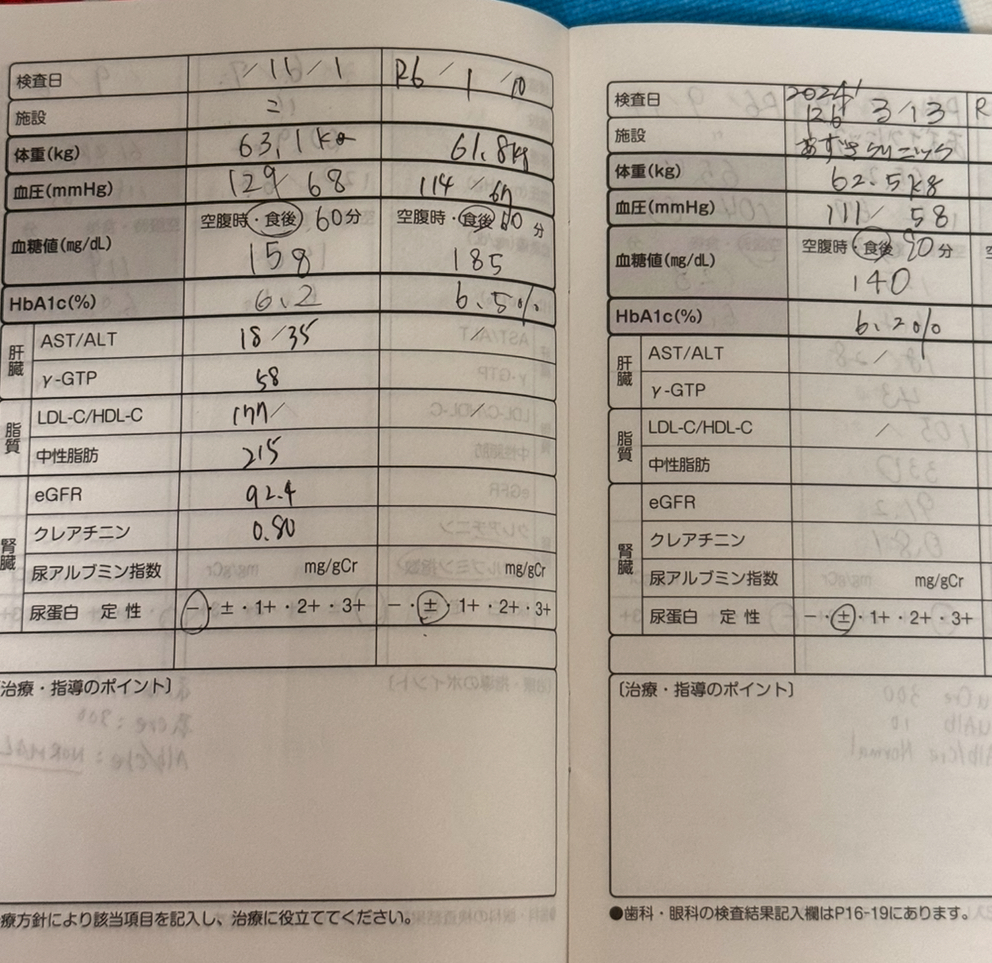 検査日 /11/1 R6/1/10
施設
体重(kg) 63.1kg 61.8kg
血圧(mmHg) 129/68 114/67
血糖値(mg/dL) 空腹時・食後 60分 空腹時・食後 60分
158 185
HbA1c(%) 6.2 6.5%
肝臓 AST/ALT 18/35 /
γ-GTP 58
脂質 LDL-C/HDL-C 177/ /
中性脂肪 215
腎臓 eGFR 92.4
クレアチニン 0.80
尿アルブミン指数 mg/gCr mg/gCr
尿蛋白 定性 −・±・1+・2+・3+ −・±・1+・2+・3+
治療・指導のポイント〕
療方針により該当項目を記入し、治療に役立ててください。
検査日 2024/ R6 3/13 R
施設 あずきクリニック
体重(kg) 62.5kg
血圧(mmHg) 111/58
血糖値(mg/dL) 空腹時・食後 90分
140
HbA1c(%) 6.2%
肝臓 AST/ALT /
γ-GTP
脂質 LDL-C/HDL-C /
中性脂肪
腎臓 eGFR
クレアチニン
尿アルブミン指数 mg/gCr
尿蛋白 定性 −・±・1+・2+・3+
〔治療・指導のポイント〕
●歯科・眼科の検査結果記入欄はP16-19にあります。